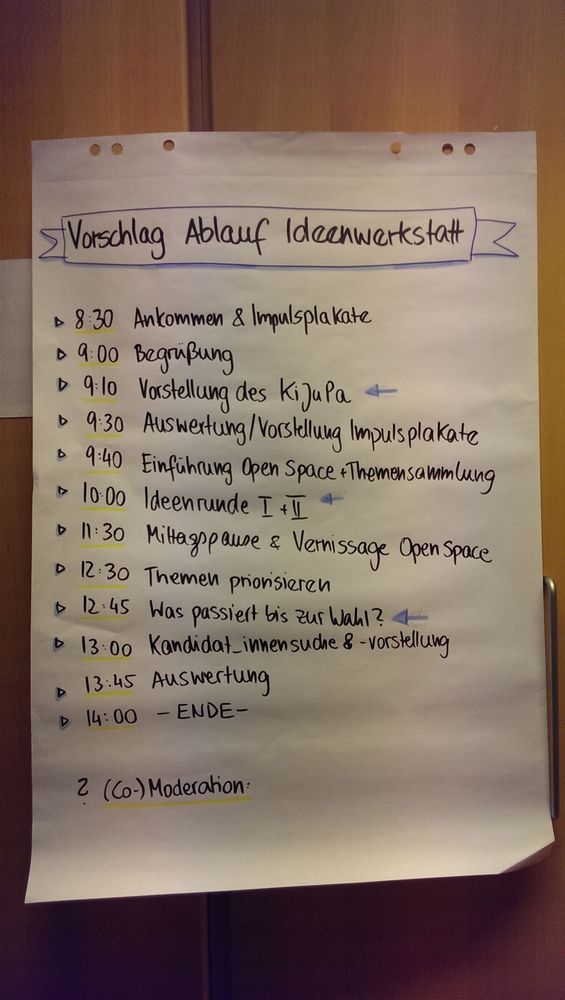 Vorschlag Ablauf Ideenwerkstatt
8:30 Ankommen & Impulsplakate
9:00 Begrüßung
9:10 Vorstellung des KiJuPa
9:30 Auswertung/Vorstellung Impulsplakate
9:40 Einführung Open Space + Themensammlung
10:00 Ideenrunde I + II
11:30 Mittagspause & Vernissage Open Space
12:30 Themen priorisieren
12:45 Was passiert bis zur Wahl?
13:00 Kandidat_innensuche & -vorstellung
13:45 Auswertung
14:00 - ENDE -
? (Co-)Moderation: